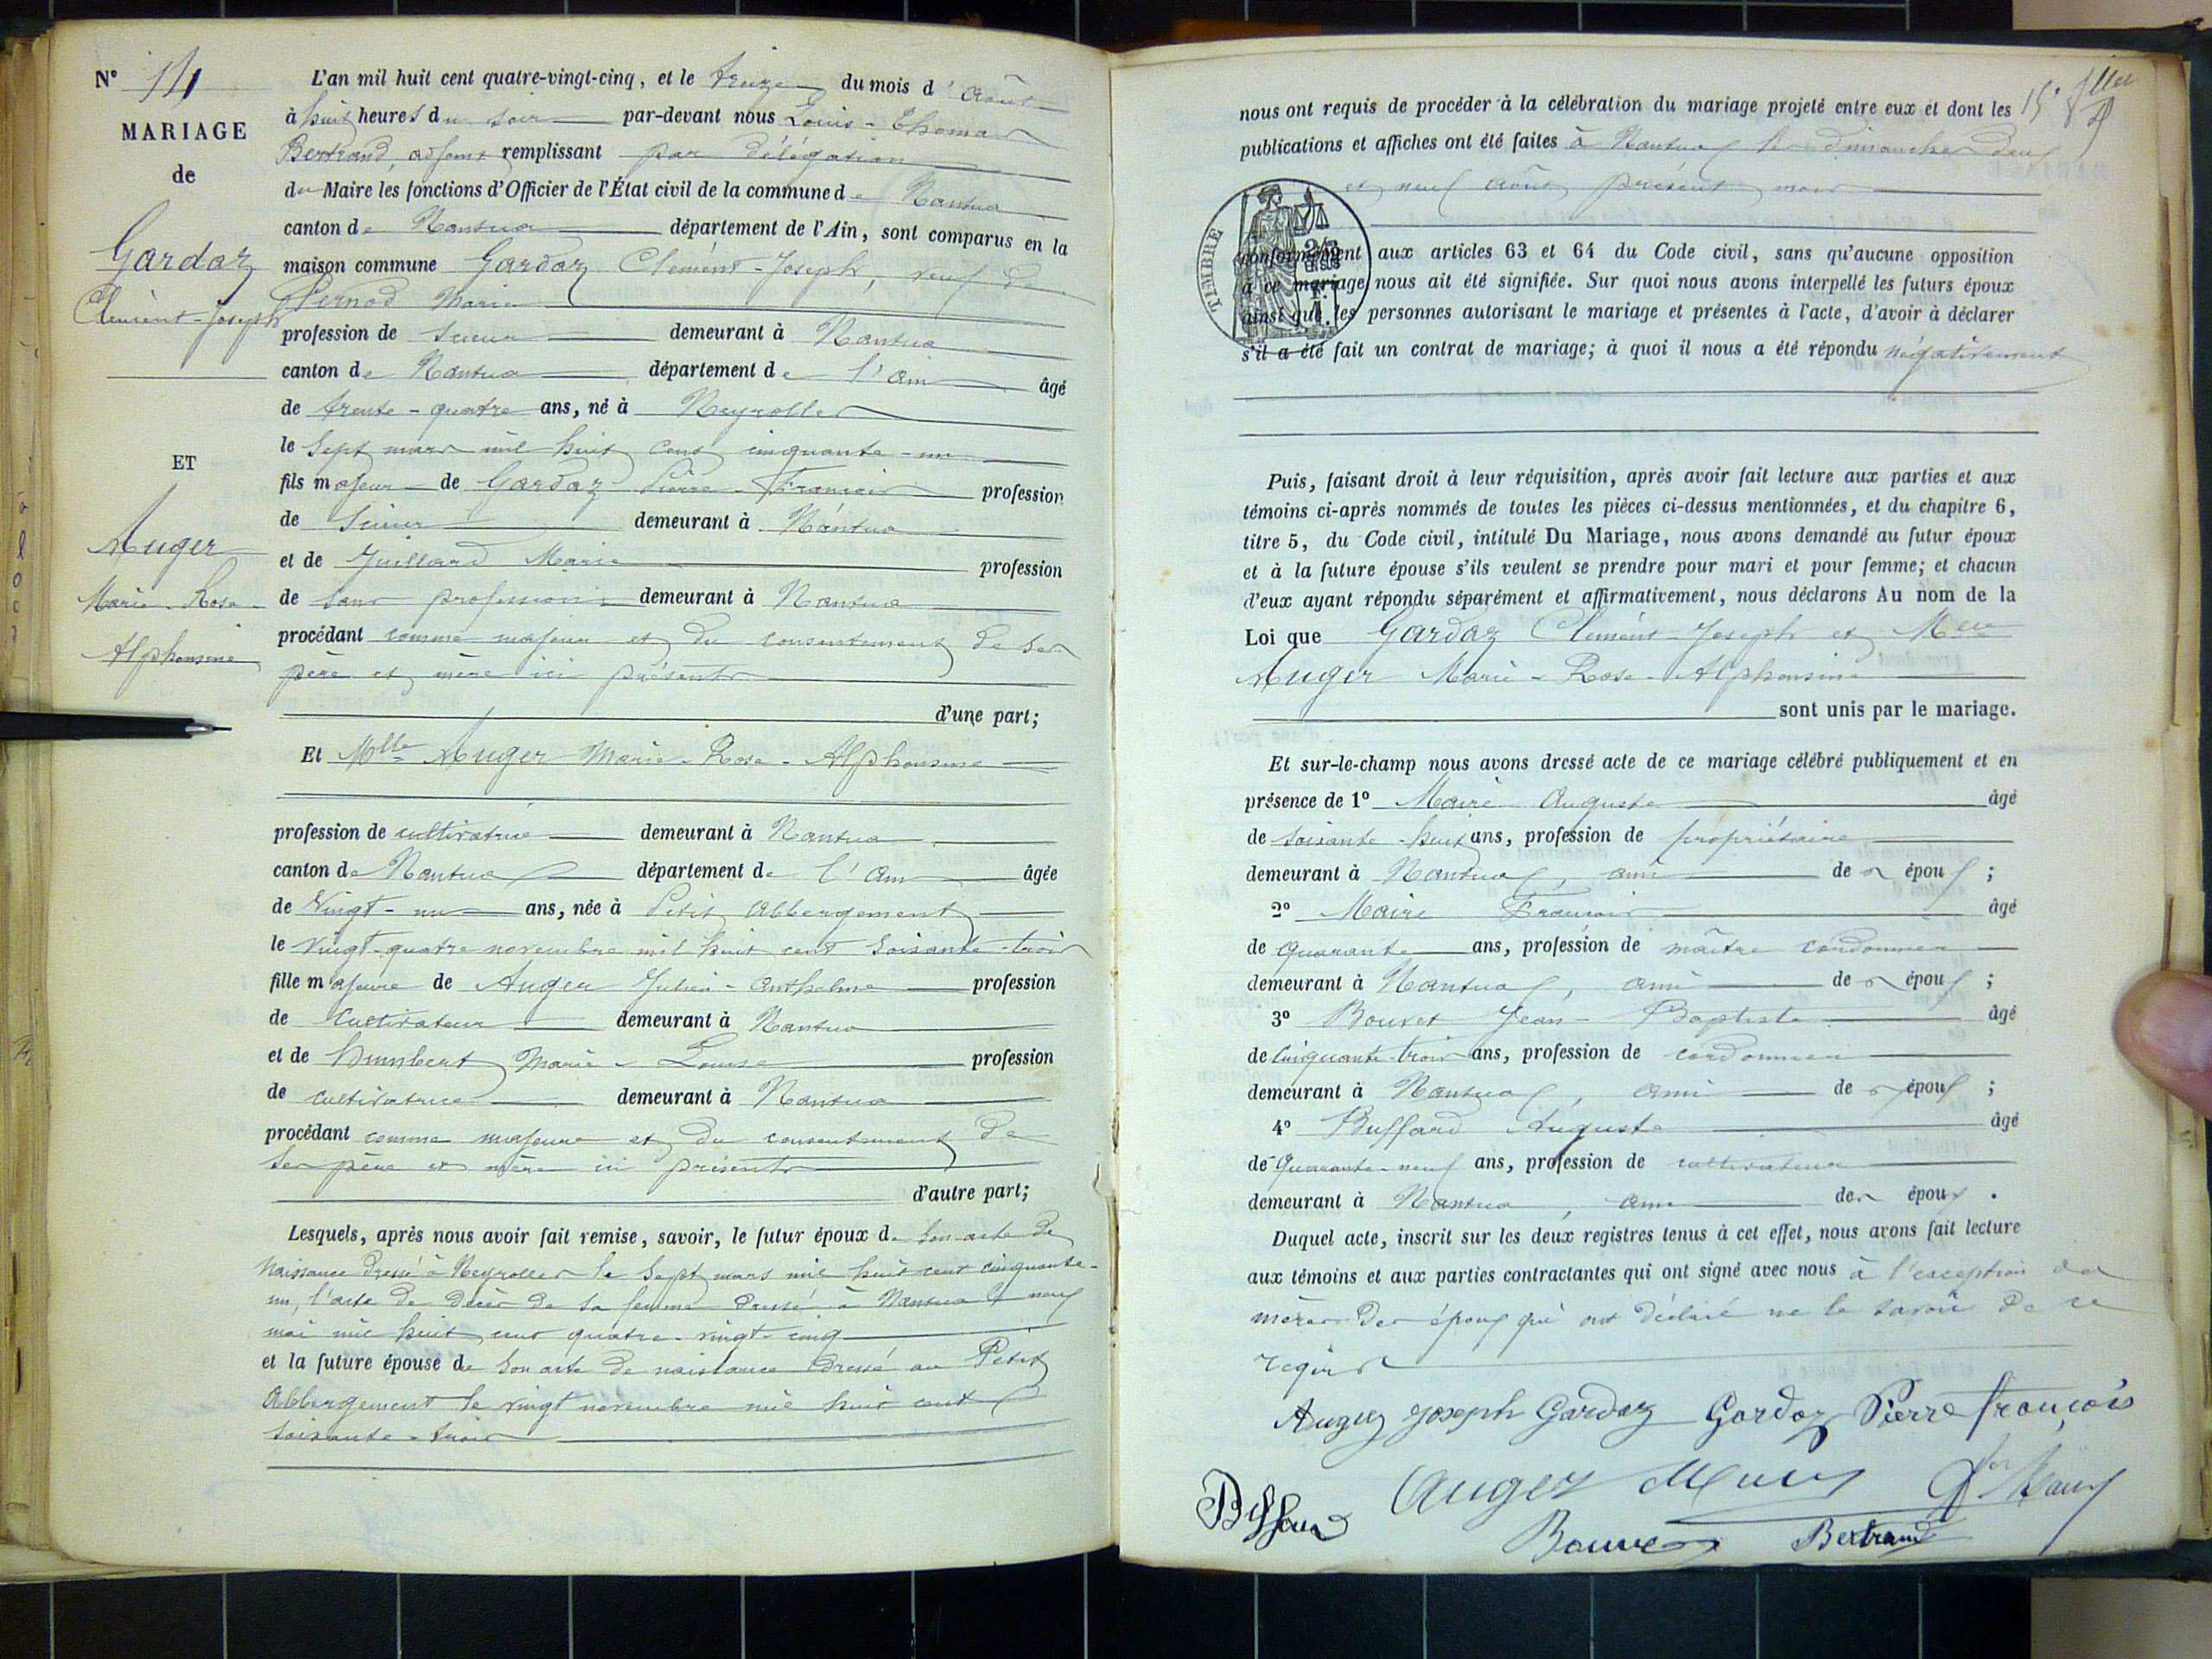 N° 14
MARIAGE
de
Gardaz
Clément-Joseph
ET
Auger
Marie-Rose-
Alphonsine
L'an mil huit cent quatre-vingt-cinq, et le treize du mois d'Août
à huit heures du soir par-devant nous Louis-Thomas
Bertrand, adjoint remplissant par délégation
du Maire les fonctions d'Officier de l'État civil de la commune de Nantua
canton de Nantua département de l'Ain, sont comparus en la
maison commune Gardaz Clément-Joseph, veuf de
Pernod Marie
profession de scieur demeurant à Nantua
canton de Nantua département de l'Ain âgé
de trente-quatre ans, né à Neyrolles
le sept mars mil huit cent cinquante-un
fils majeur de Gardaz Pierre-François profession
de scieur demeurant à Nantua
et de Juillard Marie profession
de sans profession demeurant à Nantua
procédant comme majeur et du consentement de ses
père et mère ici présents
d'une part;
Et Mlle Auger Marie-Rose-Alphonsine
profession de cultivatrice demeurant à Nantua
canton de Nantua département de l'Ain âgée
de vingt-un ans, née à Petit Abbergement
le vingt-quatre novembre mil huit cent soixante-trois
fille majeure de Auger Julien-Anthelme profession
de cultivateur demeurant à Nantua
et de Humbert Marie-Louise profession
de cultivatrice demeurant à Nantua
procédant comme majeure et du consentement de
ses père et mère ici présents
d'autre part;
Lesquels, après nous avoir fait remise, savoir, le futur époux de son acte de
naissance dressé à Neyrolles le sept mars mil huit cent cinquante-
un, l'acte de décès de sa femme dressé à Nantua le neuf
mai mil huit cent quatre-vingt-cinq
et la future épouse de son acte de naissance dressé au Petit
Abbergement le vingt novembre mil huit cent
soixante-trois
15e
nous ont requis de procéder à la célébration du mariage projeté entre eux et dont les
publications et affiches ont été faites à Nantua les dimanches deux
et neuf août présent mois
TIMBRE
conformément aux articles 63 et 64 du Code civil, sans qu'aucune opposition
à ce mariage nous ait été signifiée. Sur quoi nous avons interpellé les futurs époux
ainsi que les personnes autorisant le mariage et présentes à l'acte, d'avoir à déclarer
s'il a été fait un contrat de mariage; à quoi il nous a été répondu négativement
Puis, faisant droit à leur réquisition, après avoir fait lecture aux parties et aux
témoins ci-après nommés de toutes les pièces ci-dessus mentionnées, et du chapitre 6,
titre 5, du Code civil, intitulé Du Mariage, nous avons demandé au futur époux
et à la future épouse s'ils veulent se prendre pour mari et pour femme; et chacun
d'eux ayant répondu séparément et affirmativement, nous déclarons Au nom de la
Loi que Gardaz Clément-Joseph et Mlle
Auger Marie-Rose-Alphonsine
sont unis par le mariage.
Et sur-le-champ nous avons dressé acte de ce mariage célébré publiquement et en
présence de 1° Maire Auguste âgé
de soixante-huit ans, profession de propriétaire
demeurant à Nantua, ami des époux ;
2° Maire François âgé
de quarante ans, profession de maître cordonnier
demeurant à Nantua, ami des époux ;
3° Bouvet Jean-Baptiste âgé
de cinquante-trois ans, profession de cordonnier
demeurant à Nantua, ami des époux ;
4° Buffard Auguste âgé
de quarante-neuf ans, profession de cultivateur
demeurant à Nantua, ami des époux .
Duquel acte, inscrit sur les deux registres tenus à cet effet, nous avons fait lecture
aux témoins et aux parties contractantes qui ont signé avec nous à l'exception des
mères des époux qui ont déclaré ne le savoir de ce
requis
Auger Joseph Gardaz Gardaz Pierre françois
Auger
Bouvet Bertrand